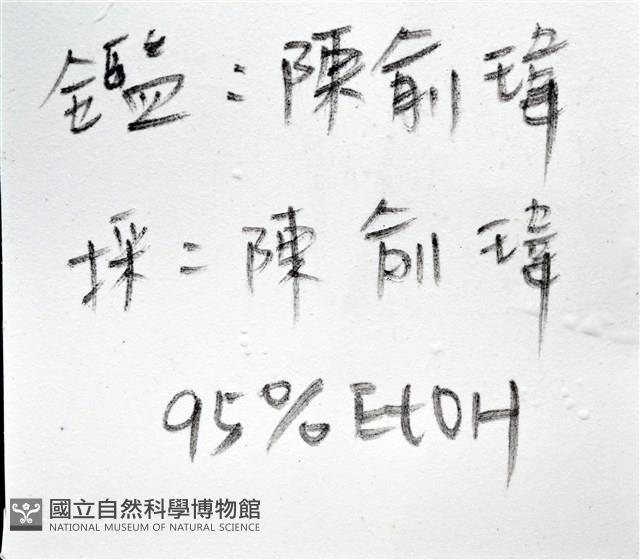 鑑：陳俞瑋
採：陳俞瑋
95% EtOH
國立自然科學博物館
NATIONAL MUSEUM OF NATURAL SCIENCE